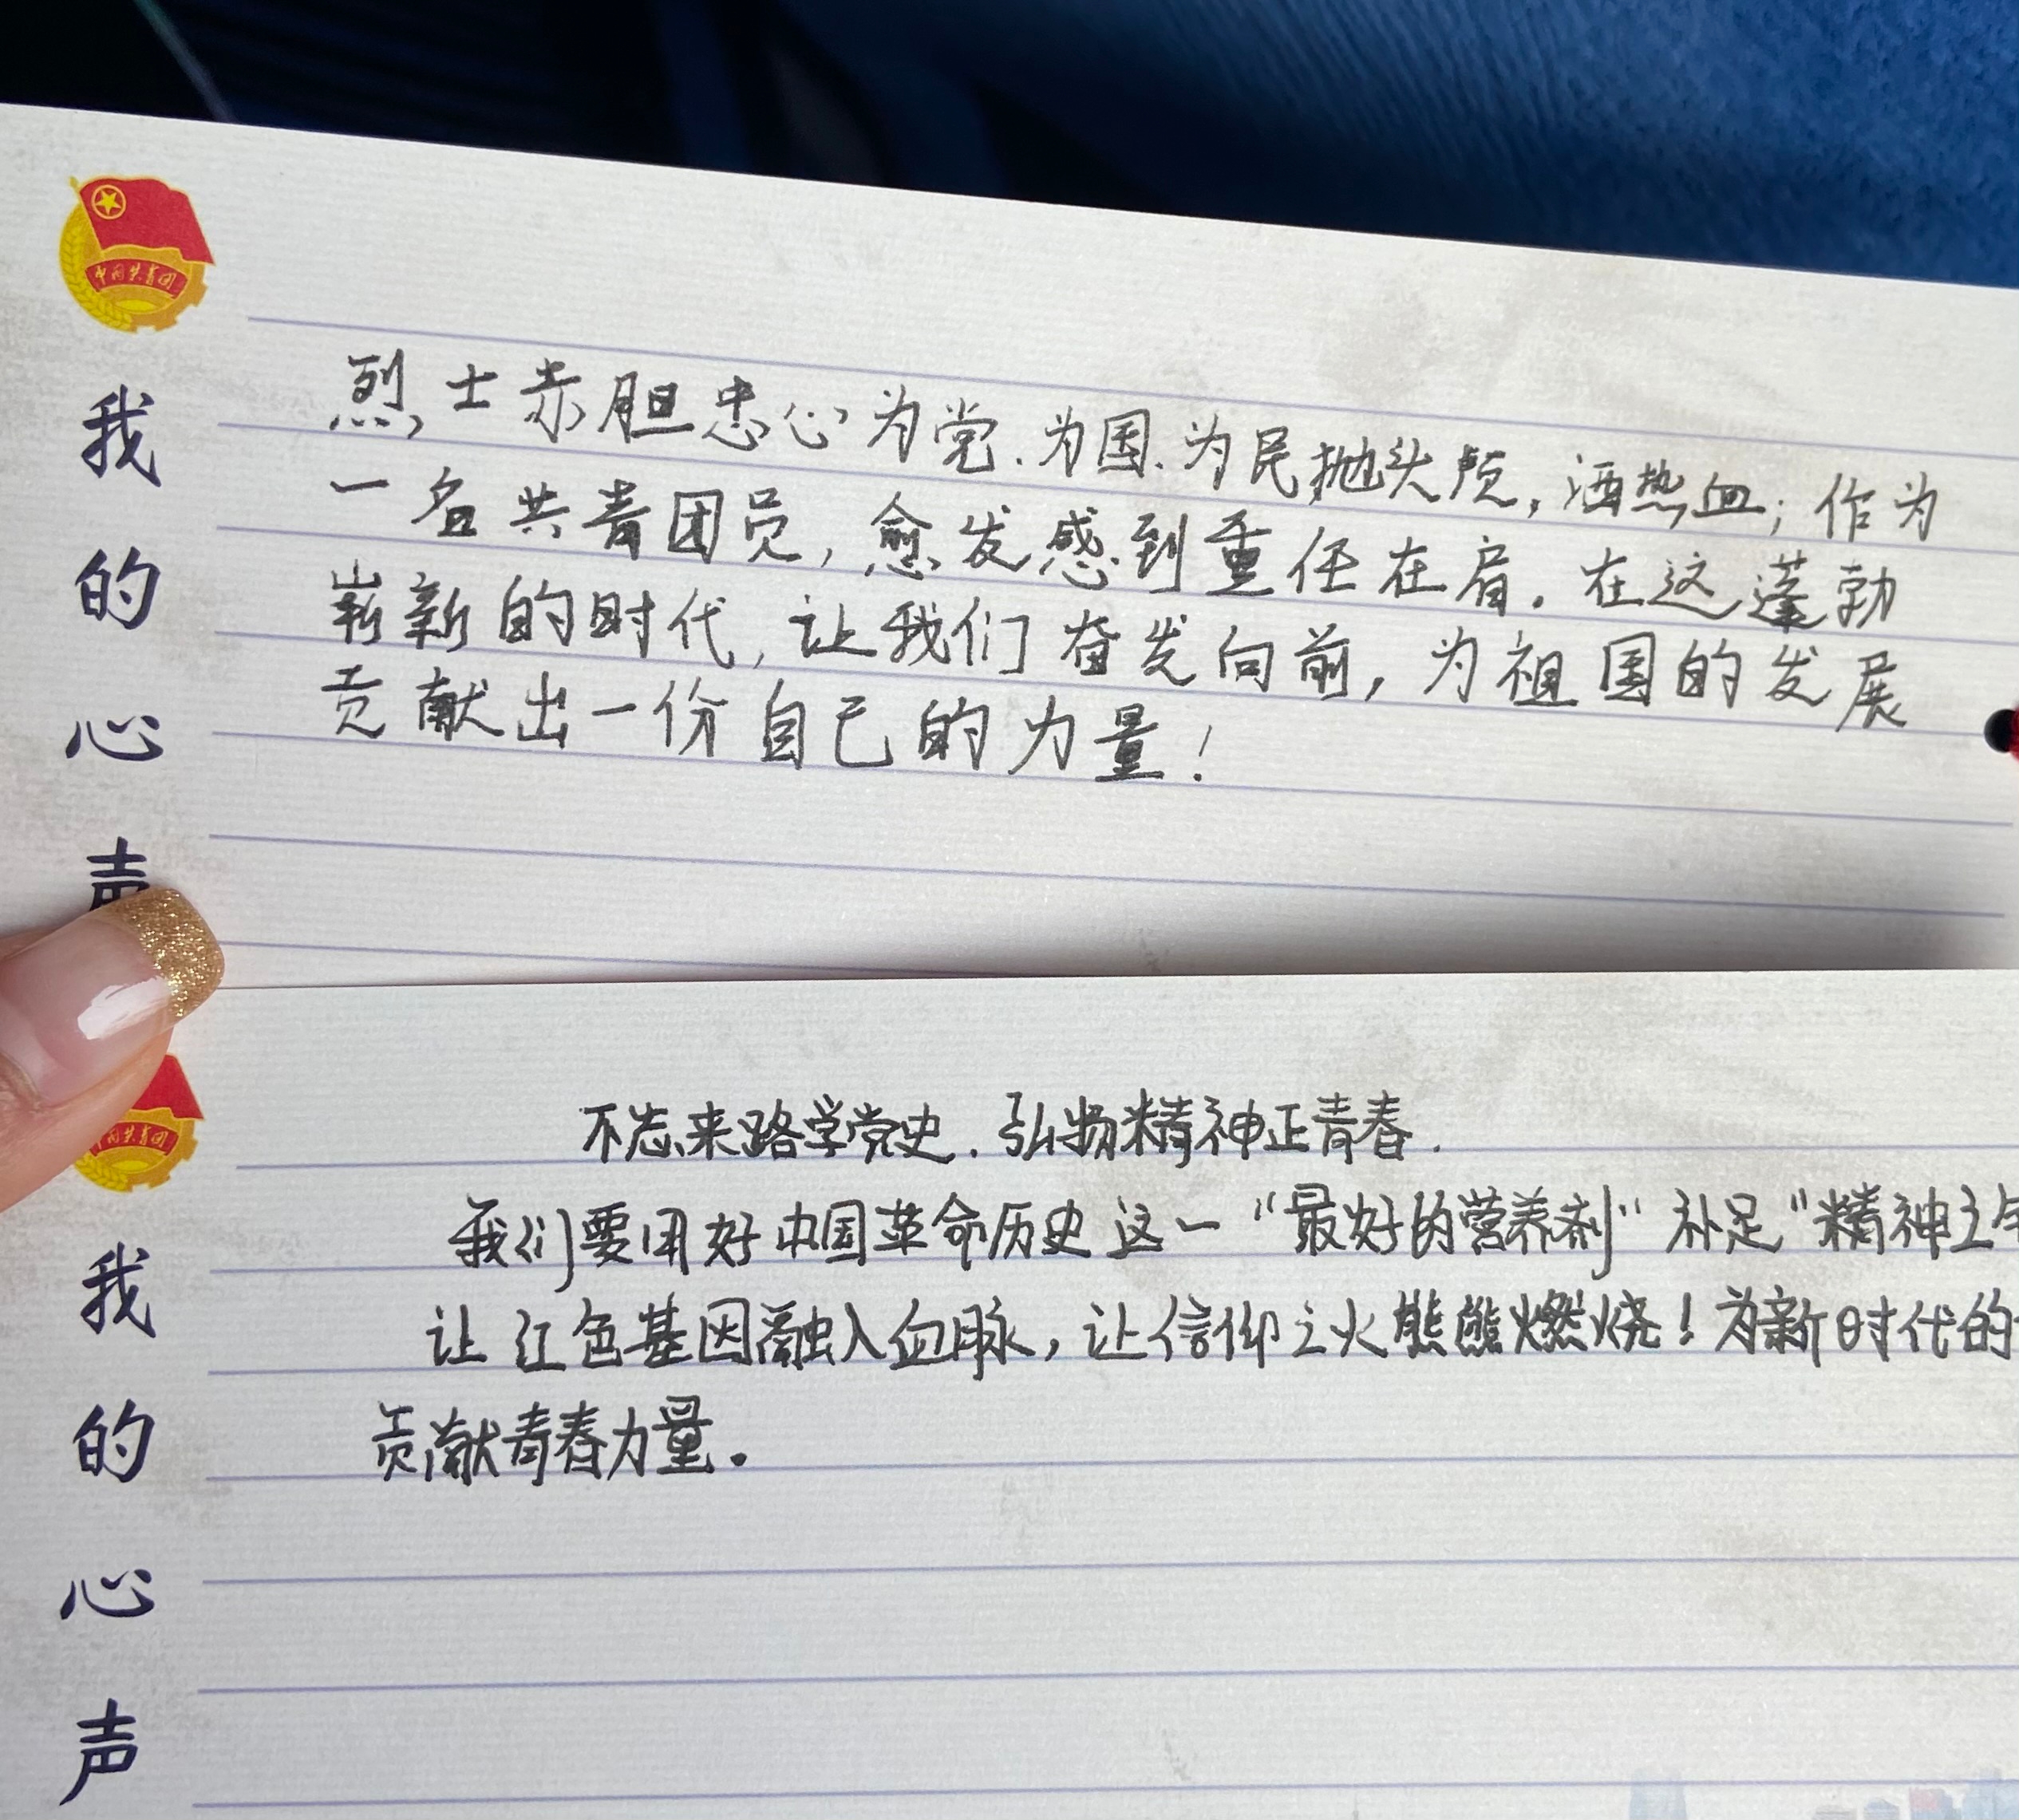 中国共青团
我的心声
烈士赤胆忠心为党、为国、为民抛头颅，洒热血；作为
一名共青团员，愈发感到重任在肩。在这蓬勃
崭新的时代，让我们奋发向前，为祖国的发展
贡献出一份自己的力量！
国共青团
我的心声
不忘来路学党史.弘扬精神正青春.
我们要用好中国革命历史这一“最好的营养剂”补足“精神之
让红色基因融入血脉，让信仰之火熊熊燃烧！为新时代的
贡献青春力量。